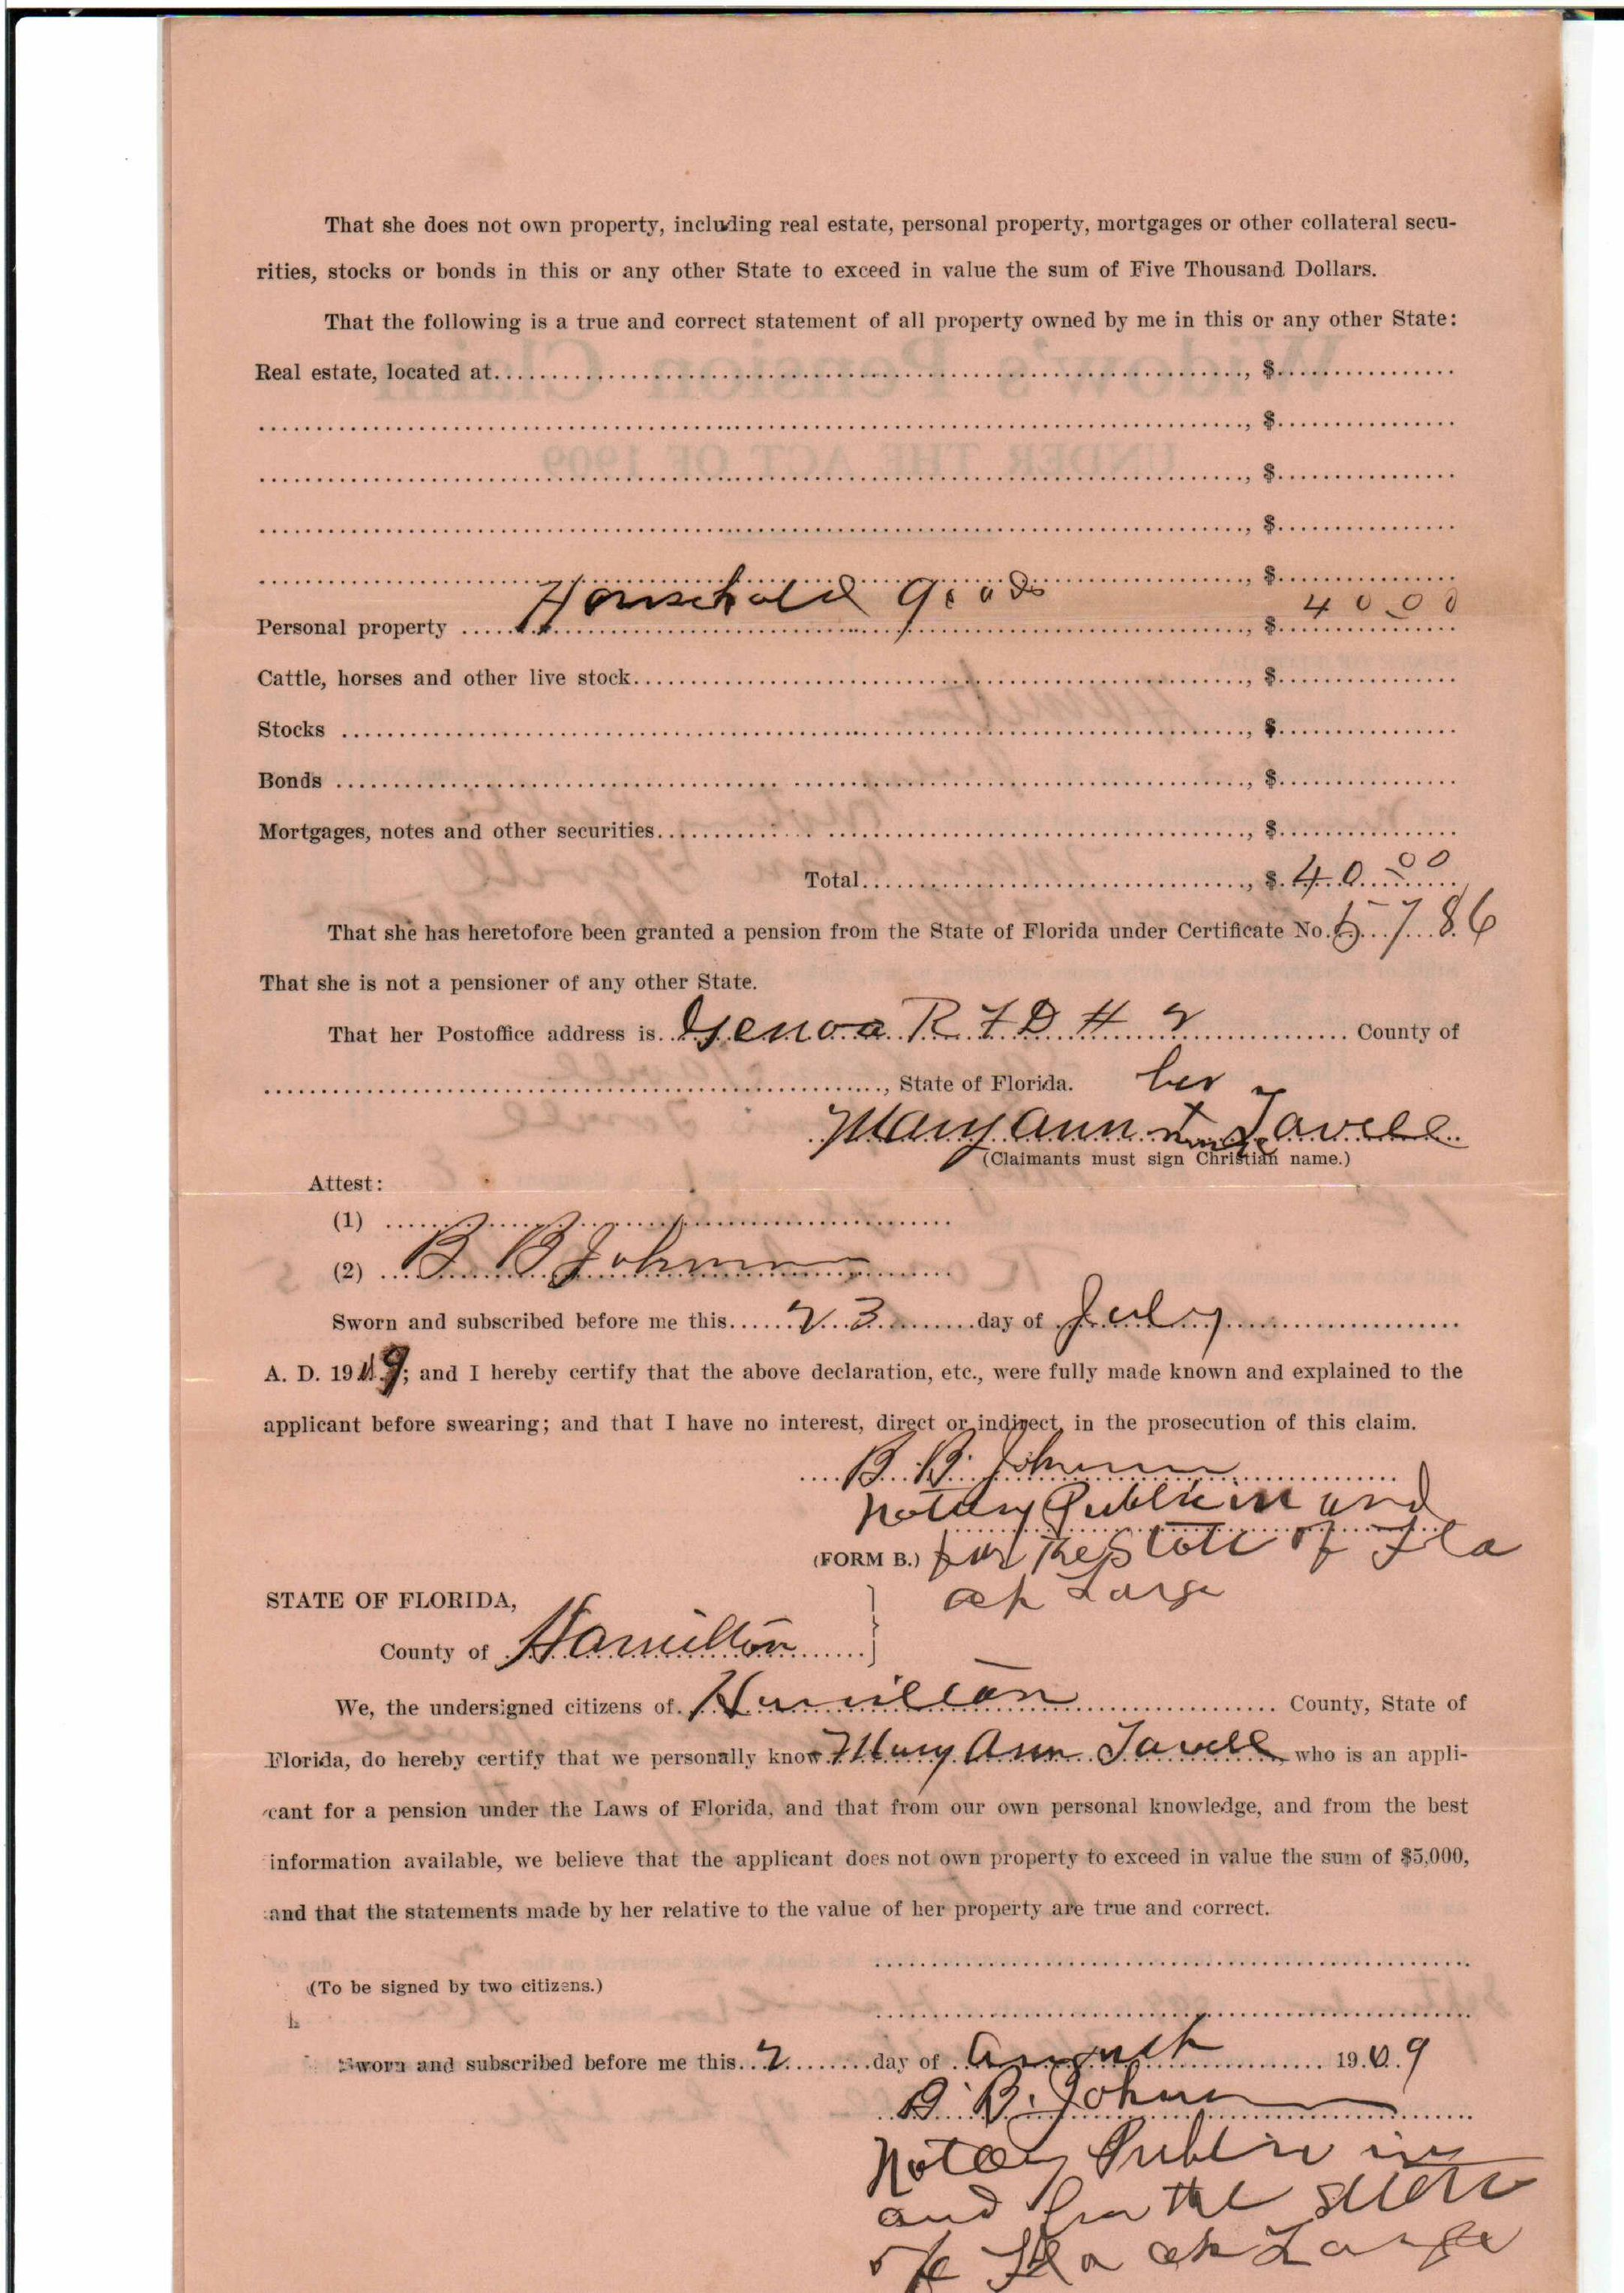 That she does not own property, including real estate, personal property, mortgages or other collateral secu-
rities, stocks or bonds in this or any other State to exceed in value the sum of Five Thousand Dollars.
That the following is a true and correct statement of all property owned by me in this or any other State:
Widow's Pension Claim
Real estate, located at , $
, $
UNDER THE ACT OF 1909
, $
, $
, $
Personal property Household goods , $ 40.00
Cattle, horses and other live stock , $
Stocks , $
Bonds , $
Mortgages, notes and other securities , $
Total , $ 40.00
That she has heretofore been granted a pension from the State of Florida under Certificate No. 5786
That she is not a pensioner of any other State.
That her Postoffice address is Genoa R F D # 2 County of
, State of Florida. her
Mary Ann x Tavell
mark
(Claimants must sign Christian name.)
Attest:
(1)
(2) B B Johnson
Sworn and subscribed before me this 23 day of July
A. D. 19 9; and I hereby certify that the above declaration, etc., were fully made known and explained to the
applicant before swearing; and that I have no interest, direct or indirect, in the prosecution of this claim.
B. B. Johnson
Notary Public in and
(FORM B.) for the State of Fla
at Large
STATE OF FLORIDA, }
County of Hamilton
We, the undersigned citizens of Hamilton County, State of
Florida, do hereby certify that we personally know Mary Ann Tavell, who is an appli-
cant for a pension under the Laws of Florida, and that from our own personal knowledge, and from the best
information available, we believe that the applicant does not own property to exceed in value the sum of $5,000,
and that the statements made by her relative to the value of her property are true and correct.
(To be signed by two citizens.)
Sworn and subscribed before me this 2 day of August 1909
B. B. Johnson
Notary Public in
and for the State
of Fla at Large